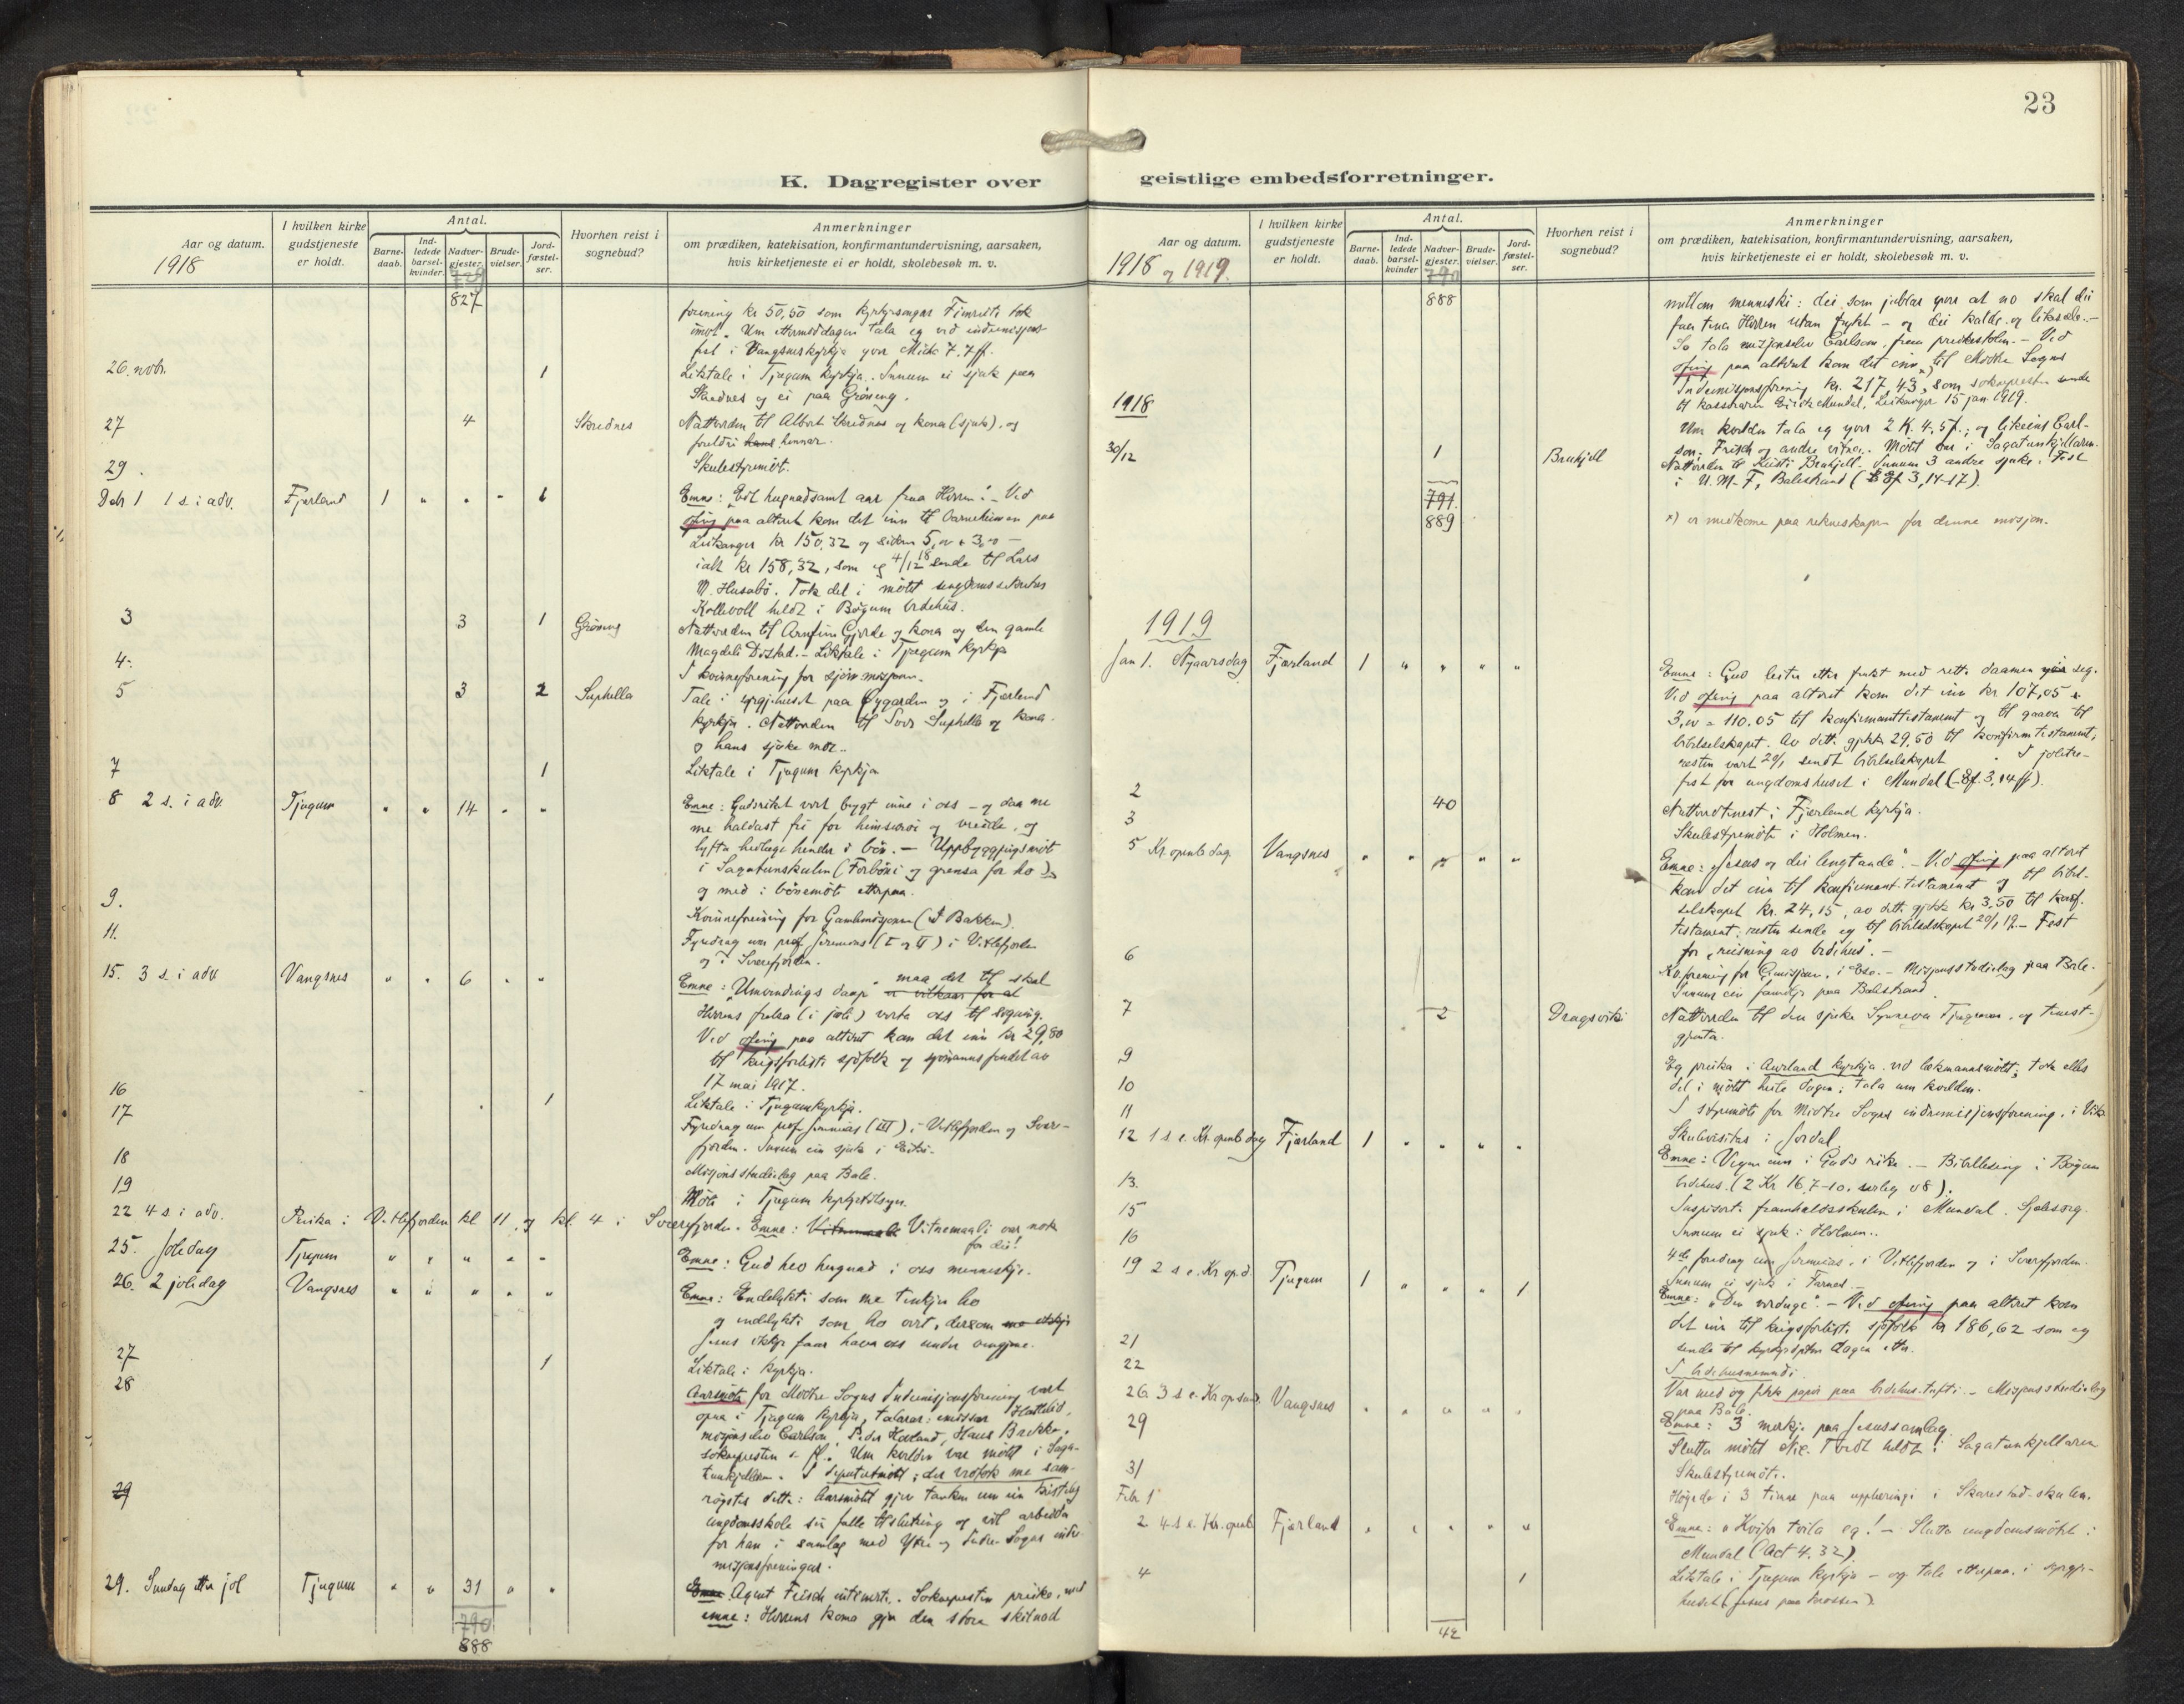 23
K. Dagregister over
Aar og datum.
1918
I hvilken kirke gudstjeneste er holdt.
Antal.
Barnedaab.
Indledede barselkvinder.
Nadvergjester.
Brudevielser.
Jordfæstelser.
Hvorhen reist i sognebud?
Anmerkninger
om prædiken, katekisation, konfirmantundervisning, aarsaken,
hvis kirketjeneste ei er holdt, skolebesøk m. v.
827
forening kr 50,50 som kyrkjesongar tok
imot. Um ettermiddagen tala eg ved indremisjons-
fest i Vangsneskyrkja yver Mika 7.7 ff.
26. novbr. 1 Liktale i Tjugum kyrkja. Innum ei sjuk paa
Skrednes og ei paa Grøneng.
27 4 Skrednes Nattverden til Albert Skrednes og kona (sjuk), og
foreldri hans hennar.
29. Skulestyremøt.
Debr 1 1 s. i adv. Fjærland 1 " " " 1 Emne: Eit hugnadsamt aar fraa Herren. - Ved
ofring paa altaret kom det inn til barneheimen paa
Leikanger kr 150,32 og sidan 5,00 + 3,00 -
ialt kr 158,32, som eg 4/12 18 sende til Lars
M. Husabø. Tok del i møtet
Kollevoll heldt i Bøyum bedehus.
3 3 1 Grøneng Nattverden til Arnfinn Gjerde og kona og den gamle
Magdeli Distad. - Liktale i Tjugum kyrkja
4. I kvinneforening for sjømmisjonen.
5 3 2 Suphella Tale i syrgjehuset paa Øygarden og i Fjærland
kyrkja. Nattverden til Suphella og kona
o hans sjuke mor.
7 1 Liktale i Tjugum kyrkja
8 2 s. i adv Tjugum " " 14 " " Emne: Gudsriket vert bygt inne i oss - og daa maa
me haldast fri for heimssuti og vreide, og
lyfta heilage hender i bøn. - Uppbyggjingsmøt
i Sagatunskulen (Forbøni og grensa for ho)
og med i bønemøte etterpaa.
9. Kvinneforening for (I Bakken).
11. Fyredrag um prof. Jeremias (I og II) i Vetlefjorden
og i Sværefjorden.
15. 3 s. i adv Vangsnes " " 6 " " Emne: "Umvendings daap" er vilkaar for at maa det til skal
Herrens frelsa (i joli) verta oss til signing.
Ved ofring paa altaret kom det inn kr 29,80
til krigsforliste sjøfolk og sjømanns fondet av
17 mai 1917.
16 1 Liktale i Tjugumkyrkja.
17 Fyredrag um prof Jeremias (III) i Vetlefjorden og Svære-
fjorden. Innum ein sjuk i
18 Misjonsstudielag paa Bale.
19 Møte i Tjugum kyrkjetilsyn.
22 4 s. i adv. Preika i Vetlefjorden kl 11 og kl. 4 i Sværefjorden. Emne: Vitnemaali var nok
for dei!
25. Joledag Tjugum " " " " " Emne: Gud hev hugnad i oss menneskje.
26. 2 joledag Vangsnes " " " " " Emne: Endelykti som me tenkjer ho
og endelykti som ho vert, dersom me ikkje
Jesus ikkje faar hava oss under
27 1 Liktale i kyrkja.
28 Aarsmøte for Midtre Sogns Indremisjonsforening vart
opna i Tjugum kyrkja, talarar: emissær Hattelid,
misjonselev Carlson, Peder Havland, Hans Brekke,
soknepresten o. fl. Um kvelden var møtet i Saga-
tunkjellaren. I deputatmøtet; der vedtok me sam-
29 røystes dette: Aarsmøtet gjev tanken um ein kristeleg
ungdomsskule sin fulle tilslutning og vil arbeida
for han i samlag med Ytre og Indre Sogns indre-
misjonsforeningar.
29. Sundag etter jol Tjugum " " 31 " " Emne. Agent Frisch intimerte. Sokneprest preika, med
emne: Herrens koma gjer den store skilnad
790
888
geistlige embedsforretninger.
Aar og datum.
1918 og 1919.
I hvilken kirke gudstjeneste er holdt.
Antal.
Barnedaab.
Indledede barselkvinder
Nadvergjester.
Brudevielser.
Jordfæstelser.
Hvorhen reist i sognebud?
Anmerkninger
om prædiken, katekisation, konfirmantundervisning, aarsaken,
hvis kirketjeneste ei er holdt, skolebesøk m. v.
790
888
millom menneski: dei som jublar yver at no skal dei
faa tena Herren utan frykt - og dei kalde og likesæle. -
So tala misjonselev Carlson, fraa preikestolen. - Ved
ofring paa altaret kom det inn x) til Midtre Sogns
Indremisjonsforening kr. 217,43, som sokneprest sende
til kasseraren Eirik Mundal, Leikanger 15 jan. 1919.
1918 Um kvelden tala eg yver 2 K. 4. 5 f.; og likeins Carl-
son, Frisch og andre vitna. Møtet var i Sagatunkjellaren.
30/12 1 Brukjell Nattverden til Kristi Brukjell. Innum 3 andre sjuke. Fest
i U.M.F, Balestrand (Ef 3,14-17).
791.
889
x) er medkome paa rekneskapen for denne misjon.
1919
Jan 1. Nyaarsdag Fjærland 1 " " " " Emne: Gud leitar etter frukt med rette daamen yver seg.
Ved ofring paa altaret kom det inn kr 107,05 +
3,00 = 110.05 til konfirmanttestament og til gaava til
bibelselskapet. Av dette gjekk 29,50 til konfirm testament,
resten vart 20/1 sendt bibelselskapet. I joletre-
fest for ungdomshuset i Mundal (Ef. 3,14 ff).
2 40 Nattverdtenest i Fjærland kyrkja.
3 Skulestyremøte i Holmen.
5 Kr. openb dag. Vangsnes " " " " " Emne: Jesus og dei lengtande". - Ved ofring paa altaret
kom det inn til konfirmant-testament og til bibel-
selskapet kr. 24,15, av dette gjekk kr 3,50 til konf.
testament; resten sende eg til bibelselskapet 20/1 19. - Fest
for "reisning av bedehus". -
6 Kv.forening for i Ese. - Misjonsstudielag paa Bale.
Innum ein familje paa Balestrand.
7 2 Dragsviki Nattverden til den sjuke Synneva Tjugum, og tenest-
gjenta.
9 Eg preika i Aurland kyrkja ved lekmannsmøtet; tok elles
del i møtet heile dagen; tala um kvelden.
10 I styremøte for Midtre Sogns indremisjonsforening, i Vik
11 Skulevisitas i Jordal
12 1 s e. Kr. openb dag Fjærland 1 " " " " Emne: Vegen inn i Guds rike. - Bibellesing i Bøyum
bedehus. (2 Kr 16,7-10, serleg v8).
13. Inspiserte framhaldsskulen i Mundal. Sjelesorg.
15 Innum ei sjuk i Holmen.
16 4de foredrag um Jeremias, i Vetlefjorden og i Sværefjorden.
Innum ei sjuk i Farnes. -
19 2 s e. Kr op.d. Tjugum 1 " " " 1 Emne: "Den vesduge". - Ved ofring paa altaret kom
det inn til krigsforliste sjøfolk kr 186,62 som eg
sende til dagen etter.
21 I bedehusnemndi.
22 Var med og fekk papir paa bedehus-tufti. - Misjonsstudielag
paa Bale.
26 3 s e. Kr opb.d. Vangsnes " " " " " Emne: 3 merkje paa Jesussamlag.
29 Slutta møtet Nic. Tvedt heldt i Sagatunkjellaren
31 Skulestyremøte.
Febr 1 Høyrde i 3 timar paa upplæringi i Skarestad-skulen.
2 4 s e. Kr. openb Fjærland " " " " " Emne: "Kvifor tvila eg! - Slutta ungdomsmøtet i
Mundal (Act 4,32)
4 1 Liktale i Tjugum kyrkja - og tale etterpaa i syrgje-
huset (Jesus paa krossen).
42